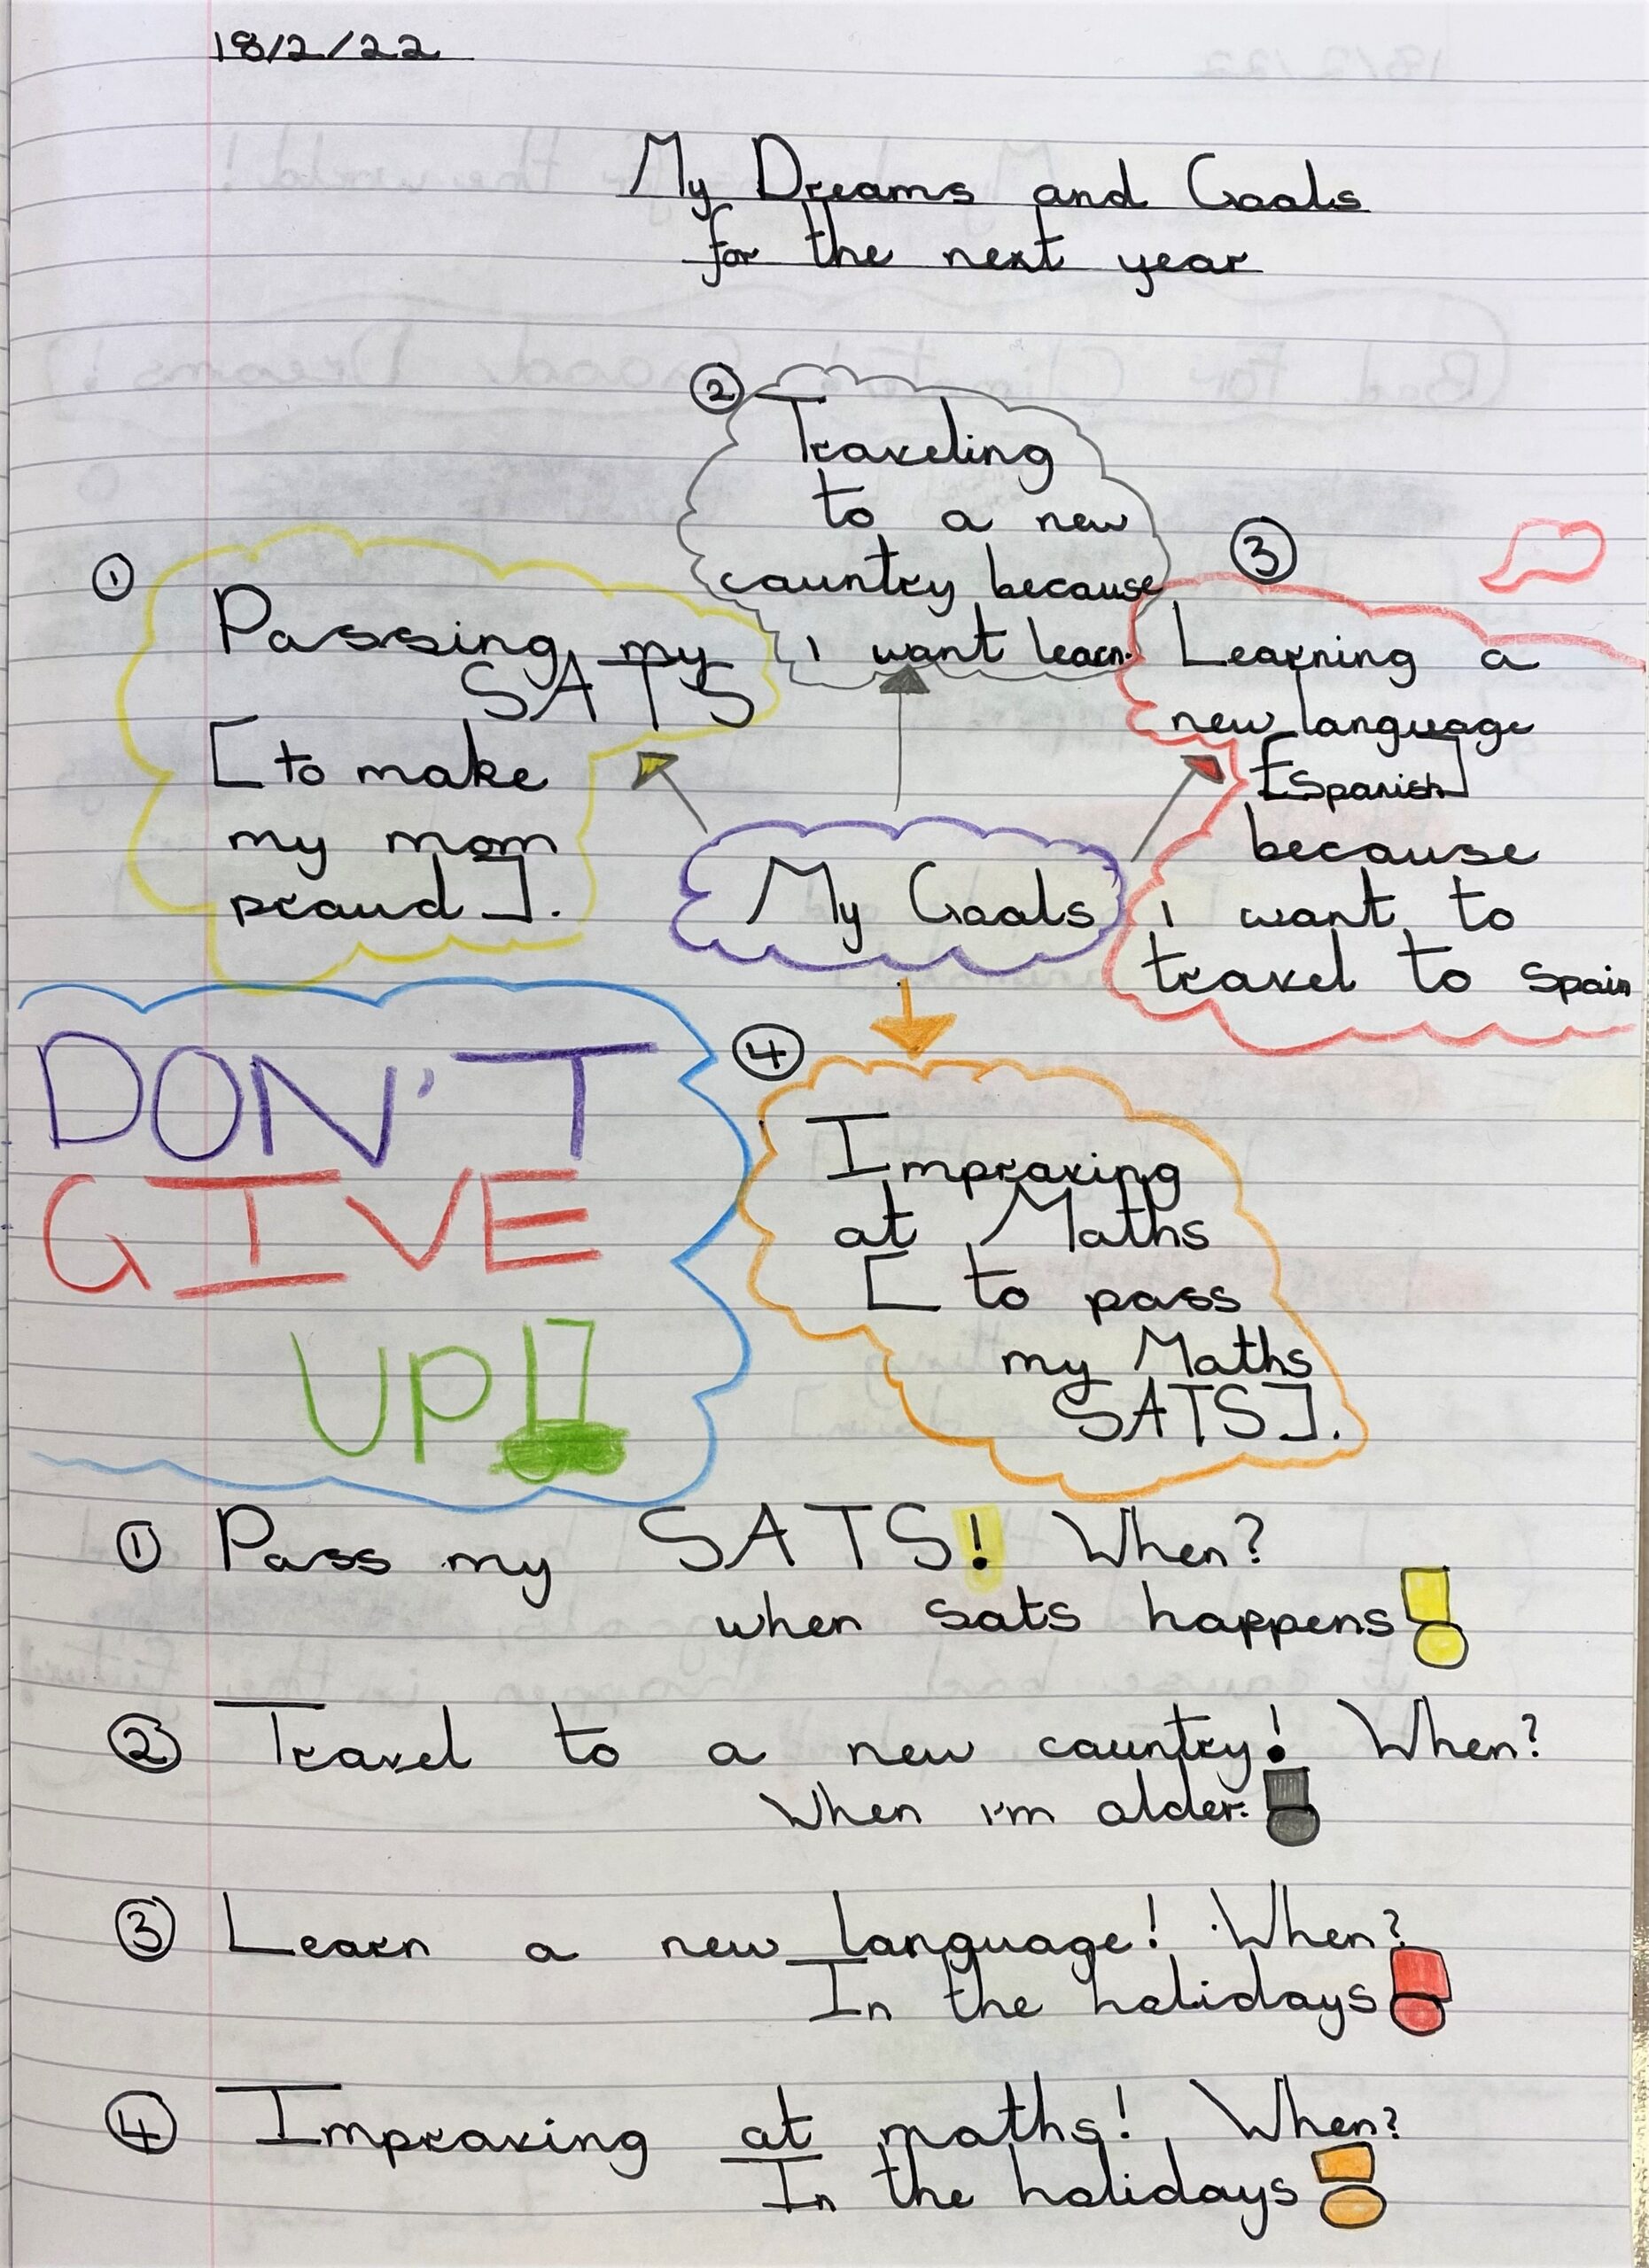 18/2/22
My Dreams and Goals
for the next year
②
Traveling
to a new
country because
I want learn.
①
Passing my
SATS
[to make
my mom
proud].
③
Learning a
new language
[Spanish]
because
I want to
travel to Spain
My Goals
DON'T
GIVE
UP!
④
Improving
at Maths
[to pass
my Maths
SATS].
① Pass my SATS! When?
when sats happens!
② Travel to a new country! When?
When I'm older.!
③ Learn a new language! When?
In the holidays!
④ Improving at maths! When?
In the holidays!